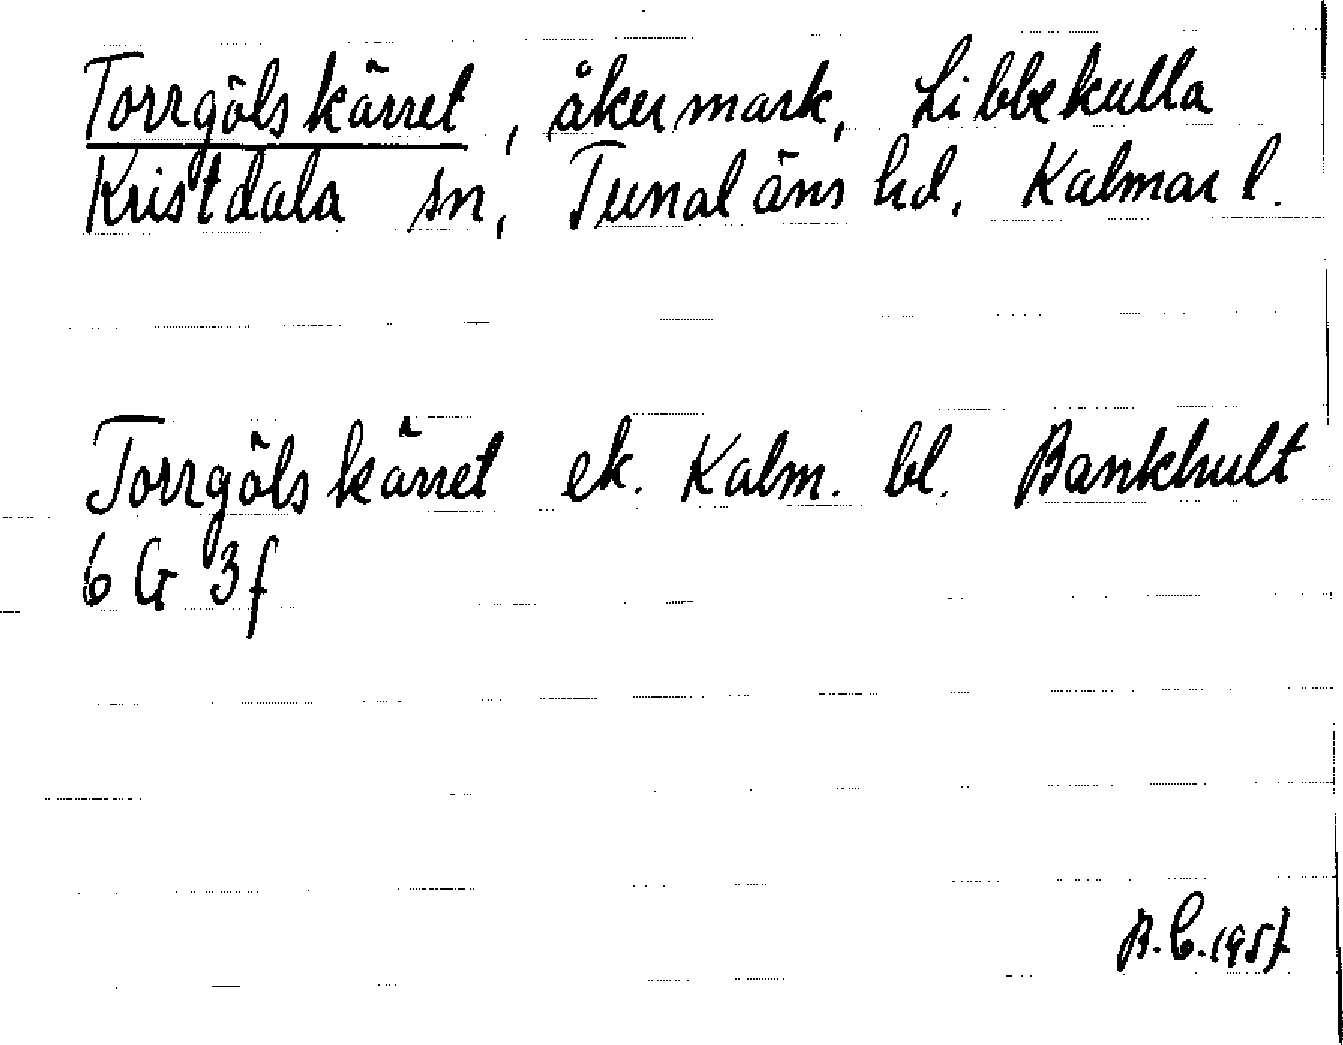 Torrgölskärret, åkermark, Libbekulla
Kristdala sn, Tunaläns hd, Kalmar l.
Torrgölskärret ek. Kalm. bl. Bankhult
6 G 3f
B.C. 1957